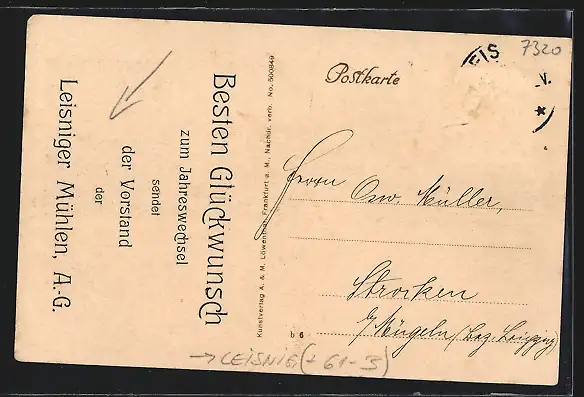 Besten Glückwunsch
zum Jahreswechsel
sendet
der Vorstand
der
Leisniger Mühlen, A.-G.
Kunstverlag A. & M. Löwenhain, Frankfurt a. M., Nachdr. verb. No. 500849
Postkarte
EIS
V.
*
7320
Herrn Osw. Müller,
Strocken
b/Mügeln (Bez. Leipzig)
b 6
→ LEISNIG (+ 61-3)